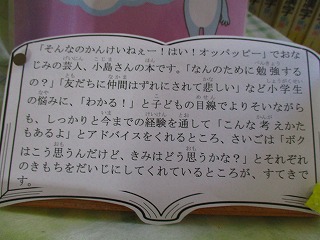 「そんなのかんけいねぇー！はい！オッパッピー」でおな
じみの芸人、小島さんの本です。「なんのために勉強する
の？」「友だちに仲間はずれにされて悲しい」など小学生
の悩みに、「わかる！」と子どもの目線でよりそいながら
も、しっかりと今までの経験を通して「こんな考えかた
もあるよ」とアドバイスをくれるところ、さいごは「ボク
はこう思うんだけど、きみはどう思うかな？」とそれぞれ
のきもちをだいじにしてくれているところが、すてきで
す。